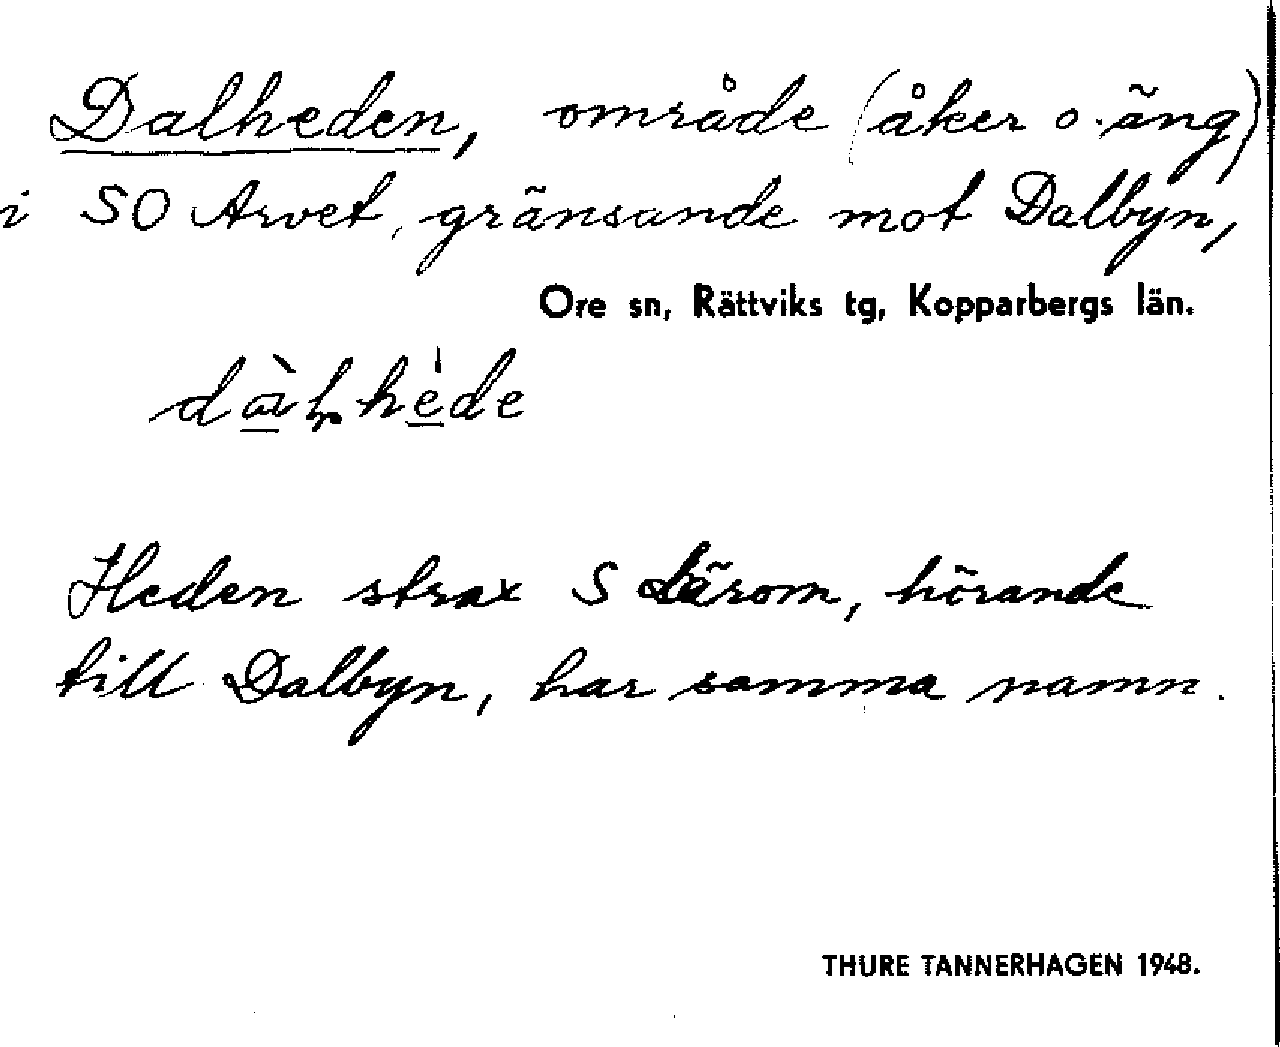 Dalheden, område (åker o. äng)
i SO Arvet, gränsande mot Dalbyn,
Ore sn, Rättviks tg, Kopparbergs län.
Heden strax S Lärom, hörande
till Dalbyn, har samma namn.
THURE TANNERHAGEN 1948.